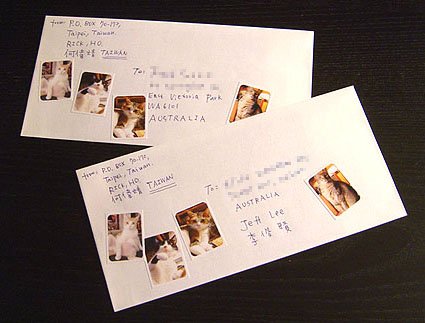 from: P.O. BOX 70-173,
Taipei, Taiwan.
RICK, HO.
TAIWAN
To:
East Victoria Park
WA 6101
AUSTRALIA
from: P.O. BOX 70-173,
Taipei, Taiwan.
RICK, HO.
TAIWAN
To:
AUSTRALIA
Jeff Lee
李俊賢